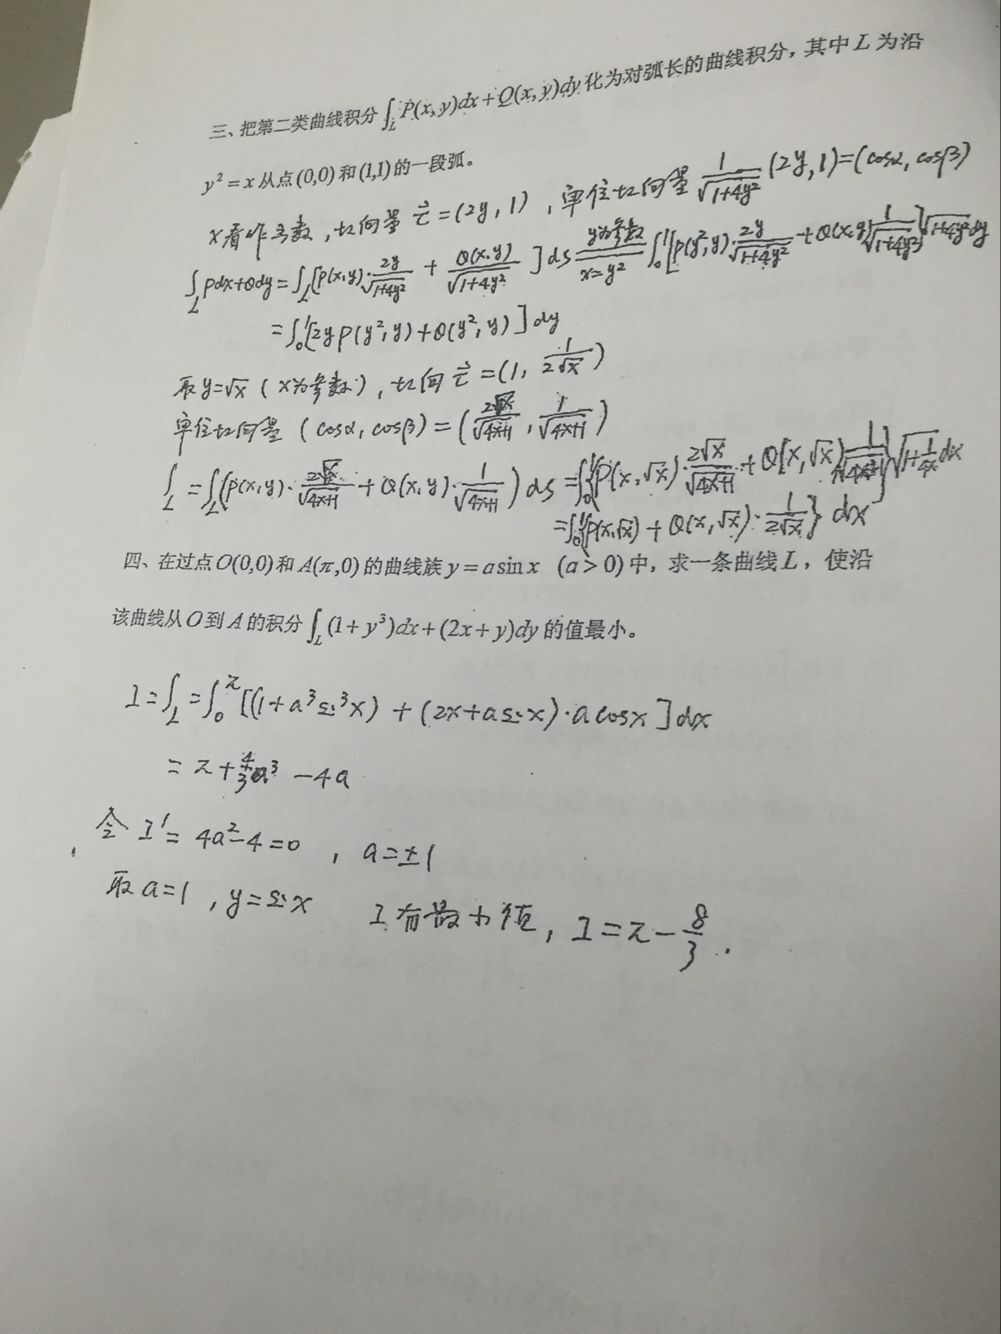 三、把第二类曲线积分∫_L P(x,y)dx+Q(x,y)dy化为对弧长的曲线积分，其中L为沿
y²=x从点(0,0)和(1,1)的一段弧。
x看作函数，切向量 τ⃗=(2y,1)，单位切向量 1/√(1+4y²) (2y,1)=(cosα,cosβ)
∫_L Pdx+Qdy=∫_L[P(x,y)·2y/√(1+4y²) + Q(x,y)/√(1+4y²)]ds (y为参数 x=y²) ∫₀¹[P(y²,y)·2y/√(1+4y²)+Q(x,y)1/√(1+4y²)]√(1+4y²)dy
=∫₀¹[2yP(y²,y)+Q(y²,y)]dy
取y=√x (x为参数)，切向 τ⃗=(1, 1/(2√x))
单位切向量 (cosα,cosβ)=(2√x/√(4x+1), 1/√(4x+1))
∫_L=∫_L(P(x,y)·2√x/√(4x+1)+Q(x,y)·1/√(4x+1))ds=∫₀¹{P(x,√x)·2√x/√(4x+1)+Q[x,√x]1/√(4x+1)}√(1+1/4x)dx
=∫₀¹{P(x,√x)+Q(x,√x)·1/(2√x)}dx
四、在过点O(0,0)和A(π,0)的曲线族y=asinx (a>0)中，求一条曲线L，使沿
该曲线从O到A的积分∫_L(1+y³)dx+(2x+y)dy的值最小。
I=∫_L=∫₀^π[(1+a³sin³x)+(2x+asinx)·acosx]dx
=π+4/3a³-4a
令I'=4a²-4=0，a=±1
取a=1，y=sinx I有最小值，I=π-8/3.